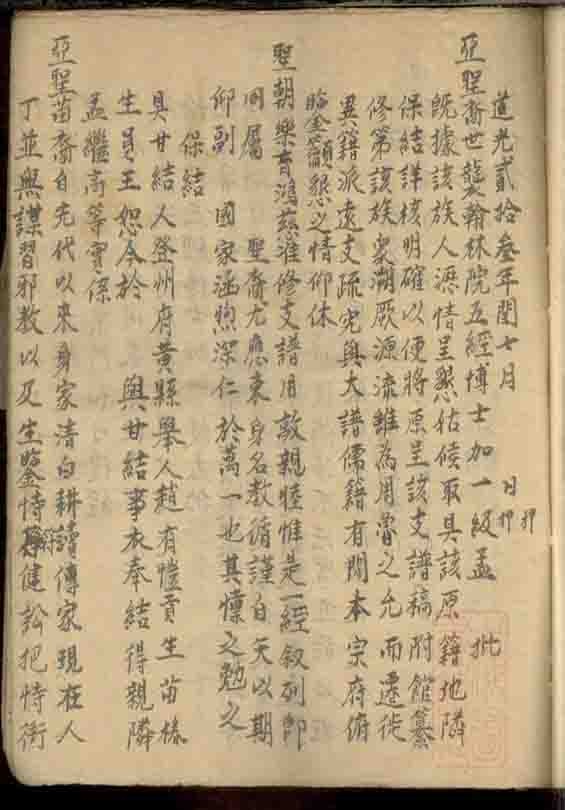 道光貳拾叁年閏七月　　日押　押
亞聖裔世襲翰林院五經博士加一級孟　批
既據該族人瀝情呈懇估候取具該原籍地隣
保結詳核明確以便將原呈該支譜稿附館纂
修第該族衆溯厥源流雖為周魯之允而遷徙
異籍派遠支疏究與大譜儒籍有間本宗府俯
鑒籲懇之情仰体
聖朝樂育鴻慈准修支譜用敦親睦惟是一經叙列即
同屬　聖裔尤應束身名教循謹自矢以期
仰副　國家涵煦深仁於萬一也其懍之勉之
保結
具甘結人登州府黃縣舉人趙有愷貢生苗椿
生員王恕今於　與甘結事衣奉結得親隣
孟繼高等實係
亞聖苗裔自先代以來身家清白耕讀傳家現在人
丁並無謀習邪教以及生監恃符健訟把恃衙